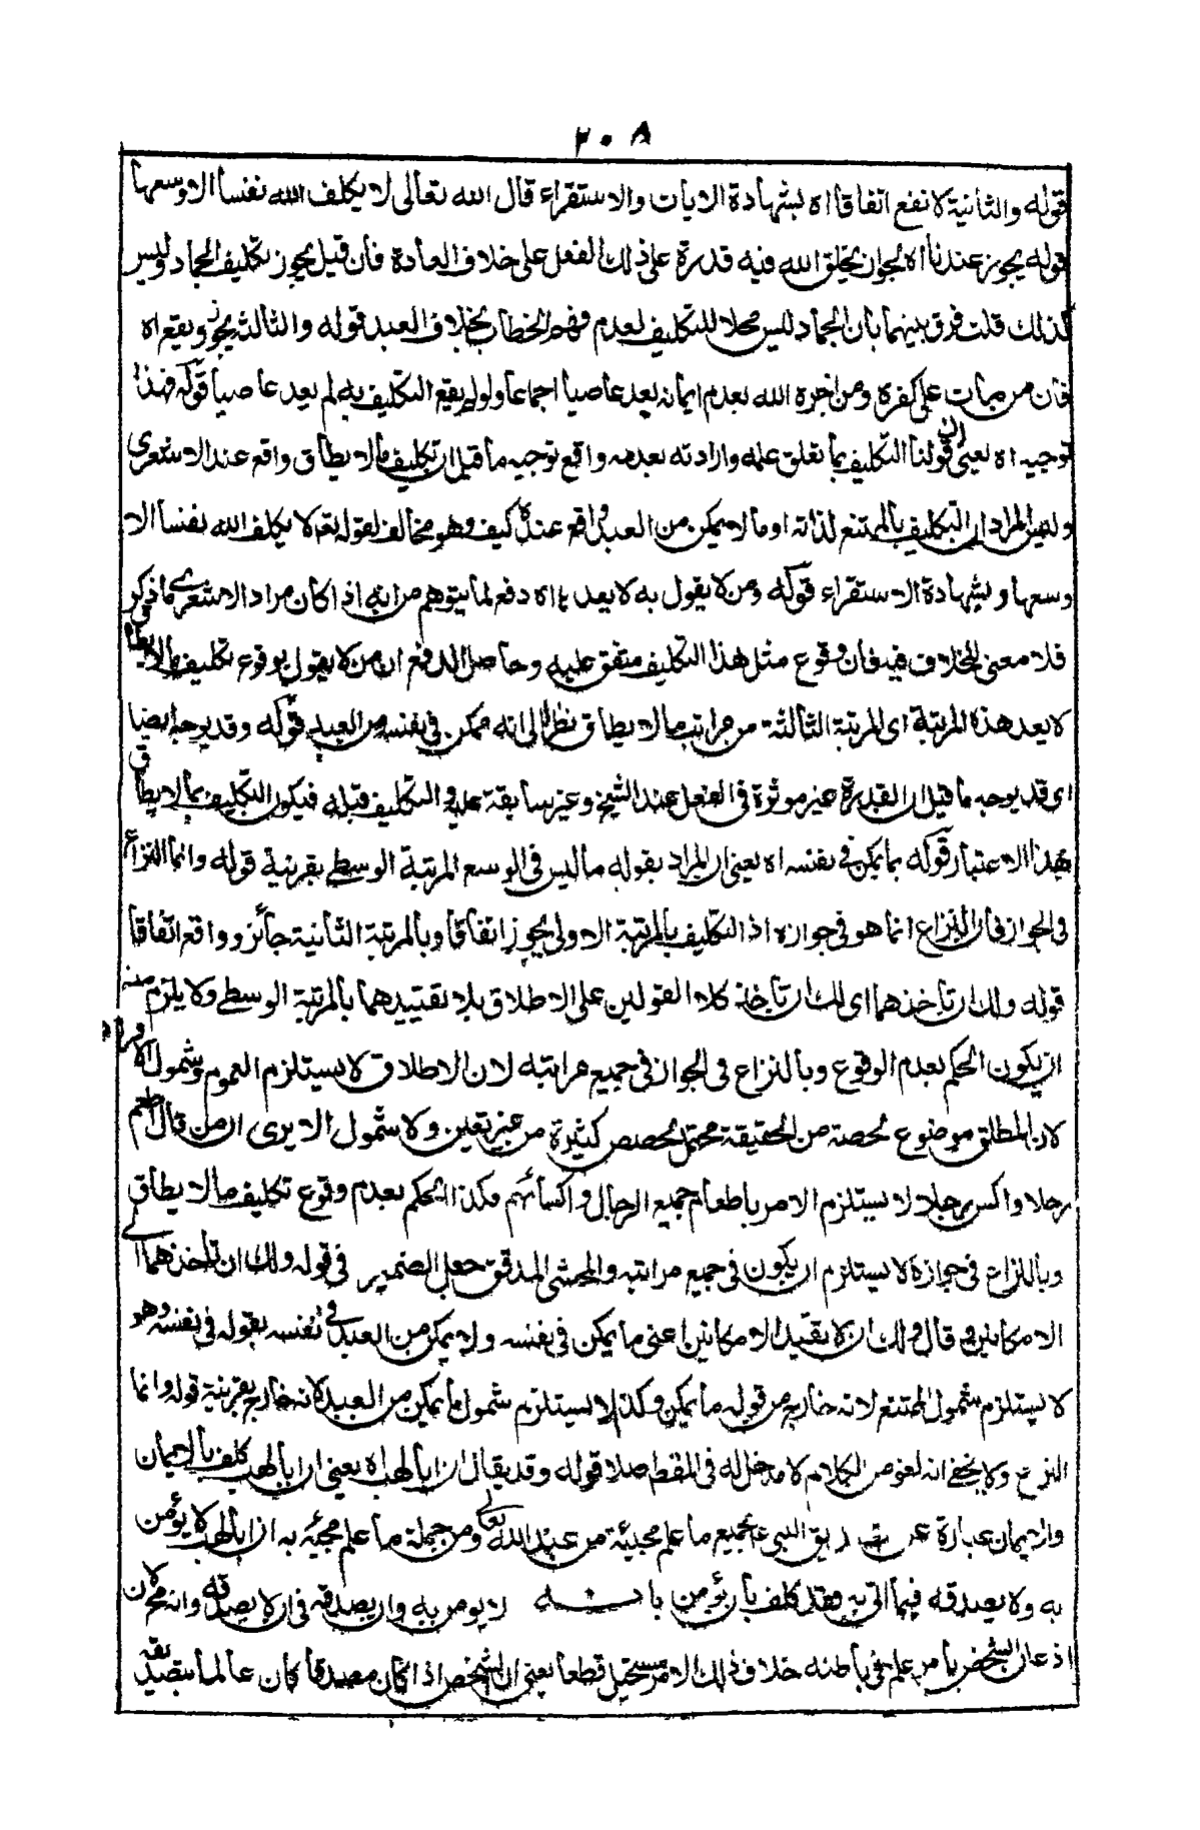 ٢٠٨
قوله والثانية لا نفع اتفاقا اه بشهادة الايات والاستقراء قال الله تعالى لا يكلف الله نفسا الا وسعها
قوله يجوز عندنا اه لجوازان يخلق الله فيه قدرة على ذلك الفعل على خلاف العادة فان قيل يجوز تكليف الجماد وليس
كذلك قلت فرق بينهما بان الجماد ليس محلا للتكليف لعدم فهم الخطاب بخلاف العبد قوله والثالثة يجوز ويقع اه
فان من مات على كفره ومن اخبره الله بعدم ايمانه يعد عاصيا اجماعا ولو لم يقع التكليف به لم يعد عاصيا قوله فهذا
توجيه اه يعنى ان قولنا التكليف بما تعلق علمه وارادته بعدمه واقع توجيه ما قيل ان تكليف مالا يطاق واقع عند الاشعرى
وليس المراد ان التكليف بالممتنع لذاته او ما لا يمكن من العبد واقع عنده كيف وهو مخالف لقوله تعه لا يكلف الله نفسا الا
وسعها وبشهادة الاستقراء قوله ومن لا يقول به لا يعد ها اه دفع لما يتوهم من انه اذا كان مراد الاشعرى ما ذكر
فلا معنى للخلاف فيه فان وقوع مثل هذا التكليف متفق عليه وحاصل الدفع ان من لا يقول بوقوع تكليف مالا يطاق
لا يعد هذه المرتبة اى المرتبة الثالثة من مراتب مالا يطاق نظرا الى انه ممكن فى نفسه من العبد قوله وقد يوجه ايضا
اى قد يوجه ما قيل ان القدرة غير موثرة فى الفعل عند الشيخ وغير سابقة عليه والتكليف قبله فيكون التكليف بمالا يطاق
بهذا الاعتبار قوله بما يمكن فى نفسه اه يعنى ان المراد بقوله ما ليس فى الوسع المرتبة الوسطى بقرينة قوله وانما النزاع
فى الجواز فان النزاع انما هو فى جوازه اذ التكليف بالمرتبة الاولى يجوز اتفاقا وبالمرتبة الثانية جائز وواقع اتفاقا
قوله ولك ان تاخذهما اى لك ان تاخذ كلا القولين على الاطلاق بلا تقييدهما بالمرتبة الوسطى ولا يلزم منه
ان يكون الحكم بعدم الوقوع وبالنزاع فى الجواز فى جميع مراتبه لان الاطلاق لا يستلزم العموم وشمول الافراد
لان المطلق موضوع لحصة من الحقيقة محتمل لحصص كثيرة من غير تعين ولا شمول الا يرى ان من قال اطعم
رجلا واكس رجلا لا يستلزم الامر باطعام جميع الرجال واكسائهم فكذا الحكم بعدم وقوع تكليف مالا يطاق
وبالنزاع فى جوازه لا يستلزم ان يكون فى جميع مراتبه والمحشى المدقق جعل الضمير فى قوله ولك ان تاخذهما الى
الامكانين وقال ولك ان لا تقيد الامكانين اعنى ما يمكن فى نفسه ولا يمكن من العبد فى نفسه بقوله فى نفسه وهو
لا يستلزم شمول الممتنع لانه خارج من قوله ما يمكن وكذا لا يستلزم شمول ما يمكن من العبد لانه خارج بقرينة قوله وانما
النزاع ولا يخفى انه لغو من الكلام لا مدخل له فى المقط اصلا قوله وقد يقال ان ابا لهب اه يعنى ان ابا لهب كلف بالايمان
والايمان عبارة عن تصديق النبى عم بجميع ما علم مجيئه من عند الله تعالى ومن جملة ما علم مجيئه به ان ابا لهب لا يؤمن
به ولا يصدقه فيما اتى به فقد كلف بان يؤمن بانه لا يومن به وان يصدقه فى ان لا يصدقه وانه محال لان
اذعان الشخص بامر علم فى باطنه خلاف ذلك الامر مستحيل قطعا يعنى ان الشخص اذا كان مصدقا كان عالما بتصديقه